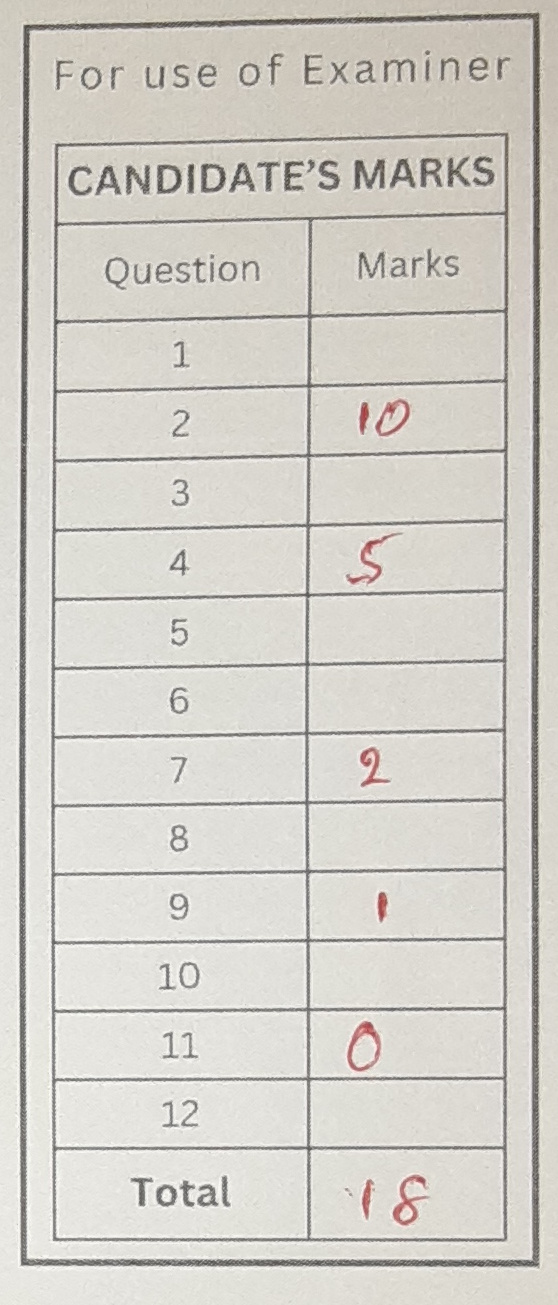 For use of Examiner
CANDIDATE'S MARKS
Question Marks
1
2 10
3
4 5
5
6
7 2
8
9 1
10
11 0
12
Total 18